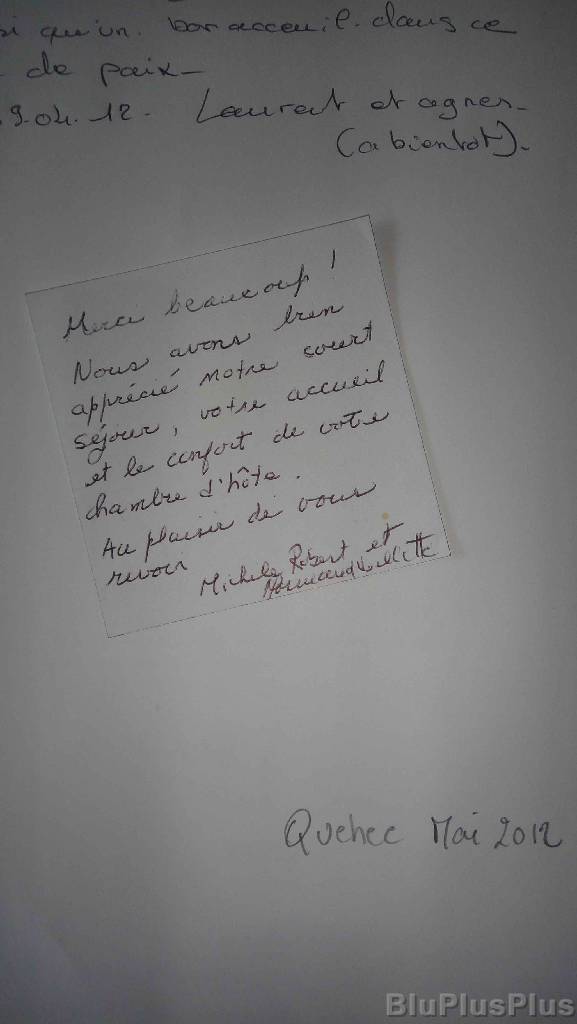 si qu'un. bon acceuil. dans ce
de paix_
9.04.12. Laurent et agnes_
(a bientot)_
Merci beaucoup !
Nous avons bien
apprécié notre court
séjour, votre accueil
et le confort de votre
chambre d'hôte.
Au plaisir de vous
revoir
Michele Robert et
Quebec Mai 2012
BluPlusPlus